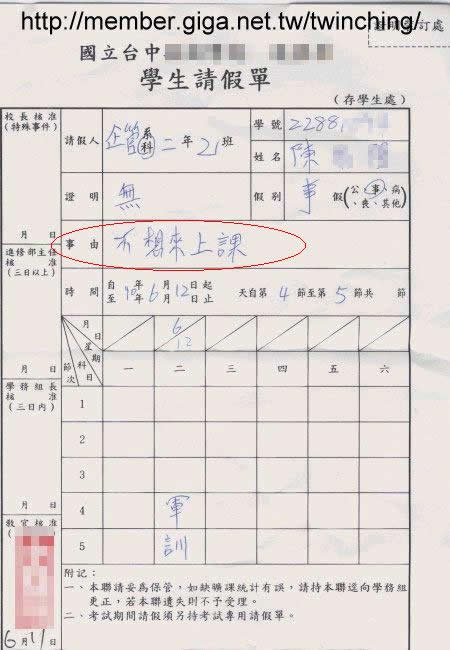 http://member.giga.net.tw/twinching/
訂處
國立台中
學生請假單
(存學生處)
校長核准
(特殊事件)
月 日
進修部主任
核准
(三日以上)
月 日
學務組長
核准
(三日內)
月 日
教官核准
6月11日
請假人 企管系科二年21班 學號 2288
姓名 陳
證明 無 假別 事假(公、事、病、喪、其他)
事由 不想來上課
時間 自至90年年6月月12日起日止 天自第4節至第5節共 節
月日 6/12
星期 節次 科目 一 二 三 四 五 六
1
2
3
4 軍
5 訓
附記:
一、本聯請妥為保管,如缺曠課統計有誤,請持本聯逕向學務組
更正,若本聯遺失則不予受理。
二、考試期間請假須另持考試專用請假單。